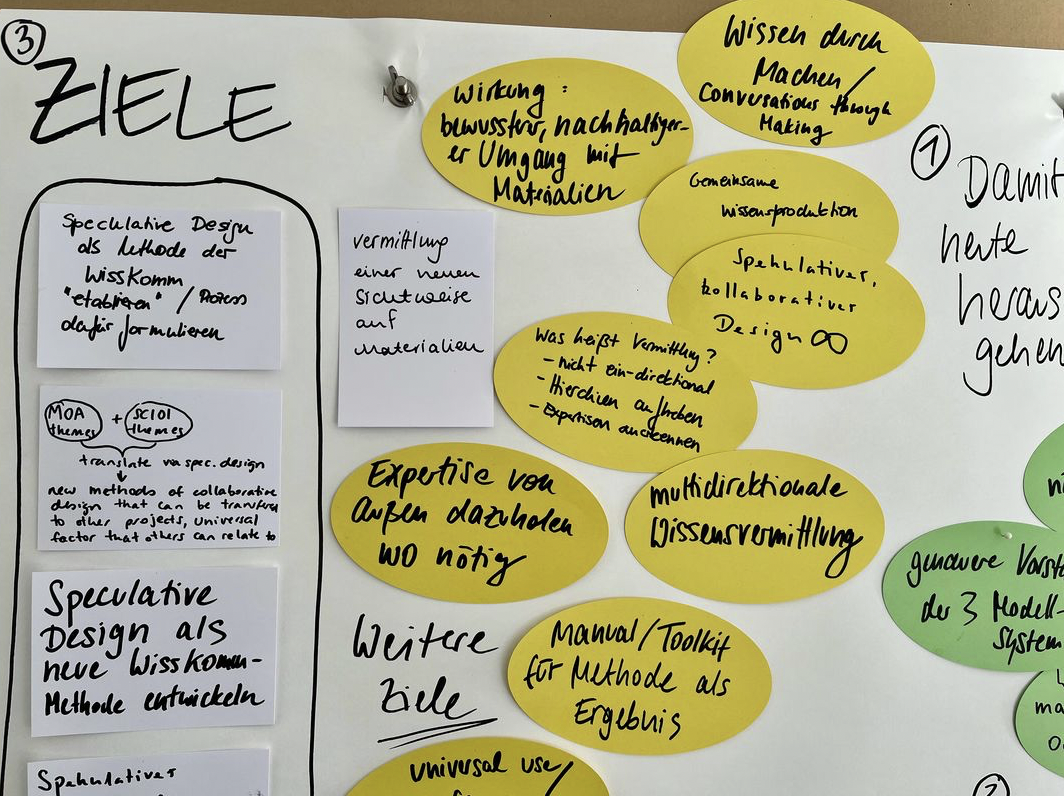 ③
ZIELE
Speculative Design
als Methode der
WissKomm
"etablieren" / Prozess
dafür formulieren
MOA
themes
+
SCIOI
themes
translate via spec. design
↓
new methods of collaborative
design that can be transfer
to other projects, universal
factor that others can relate to
Speculative
Design als
neue WissKomm-
Methode entwickeln
Spekulatives
vermittlung
einer neuen
Sichtweise
auf
Materialien
Wirkung:
bewusster, nachhaltiger-
er Umgang mit
Materialien
Wissen durch
Machen/
Conversations through
Making
Gemeinsame
Wissensproduktion
Spekulativer,
kollaborativer
Design ∞
Was heißt Vermittlung?
- nicht ein-direktional
- Hierchien aufheben
- Expertisen anerkennen
Expertise von
Außen dazuholen
wo nötig
multidirektionale
Wissensvermittlung
Weitere
Ziele
Manual/Toolkit
für Methode als
Ergebnis
universal use/
①
Damit
heute
heraus
gehen
genauere Vorst
der 3 Modell-
System
ma
②